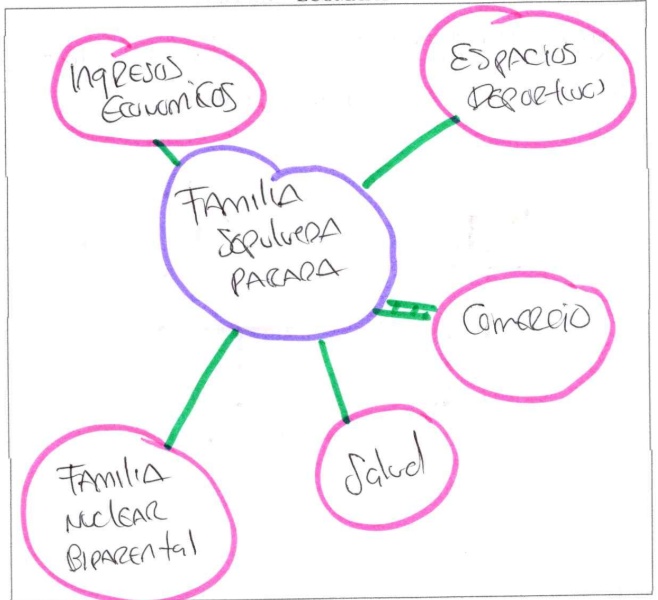 Ingresos
Economicos
Espacios
Deportivos
Familia
Sepulveda
Parada
Comercio
Salud
Familia
Nuclear
Biparental